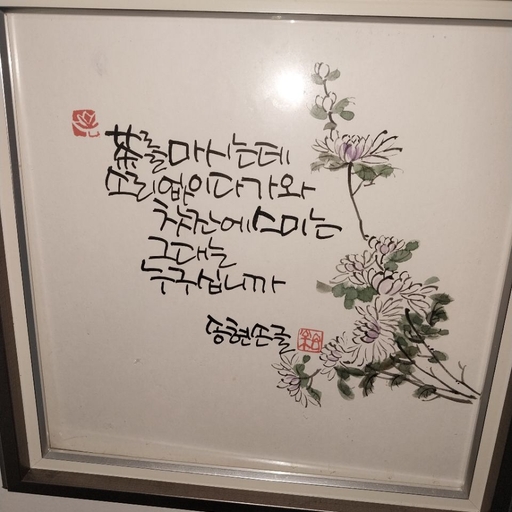 茶를 마시는데
소리없이 다가와
찻잔에 스미는
그대는
누구십니까
송현손글